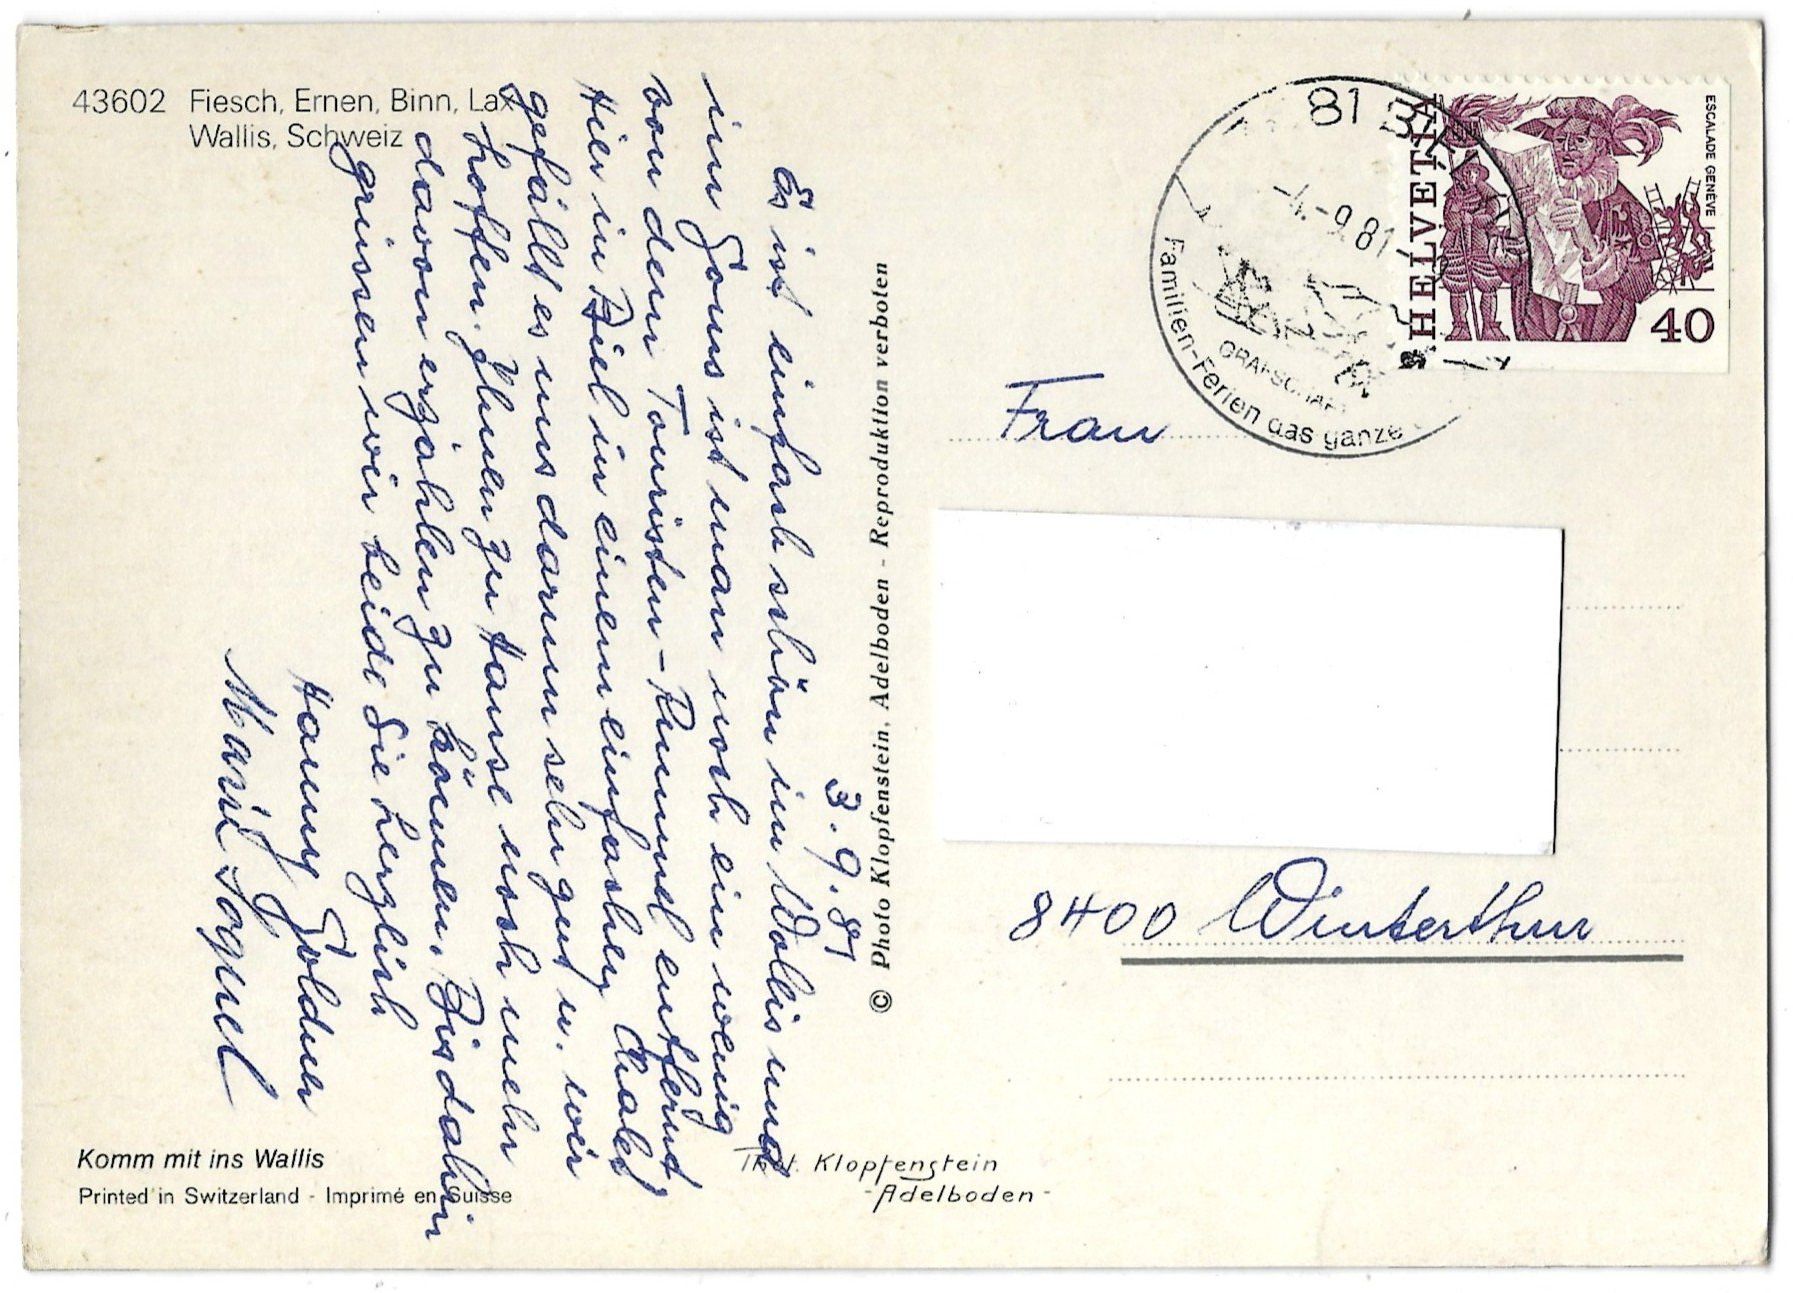 43602 Fiesch, Ernen, Binn, Lax
Wallis, Schweiz
3.9.81
Es ist einfach schön im Wallis und
im Goms ist man noch ein wenig
von dem Touristen-Rummel entfernt
Hier in Biel in einem einfachen Chalet
gefällt es uns darum sehr gut u. wir
hoffen Ihnen zu Hause noch mehr
davon erzählen zu können. Bis dahin
grüssen wir beide Sie herzlich
Hanny Goldner
Marie Soguel
Komm mit ins Wallis
Printed in Switzerland - Imprimé en Suisse
© Photo Klopfenstein, Adelboden - Reproduktion verboten
Klopfenstein
- Adelboden -
81
4.-9.81
GRAFSCHAFT
Familien-Ferien das ganze
HELVETIA
ESCALADE GENÈVE
40
Frau
8400 Winterthur